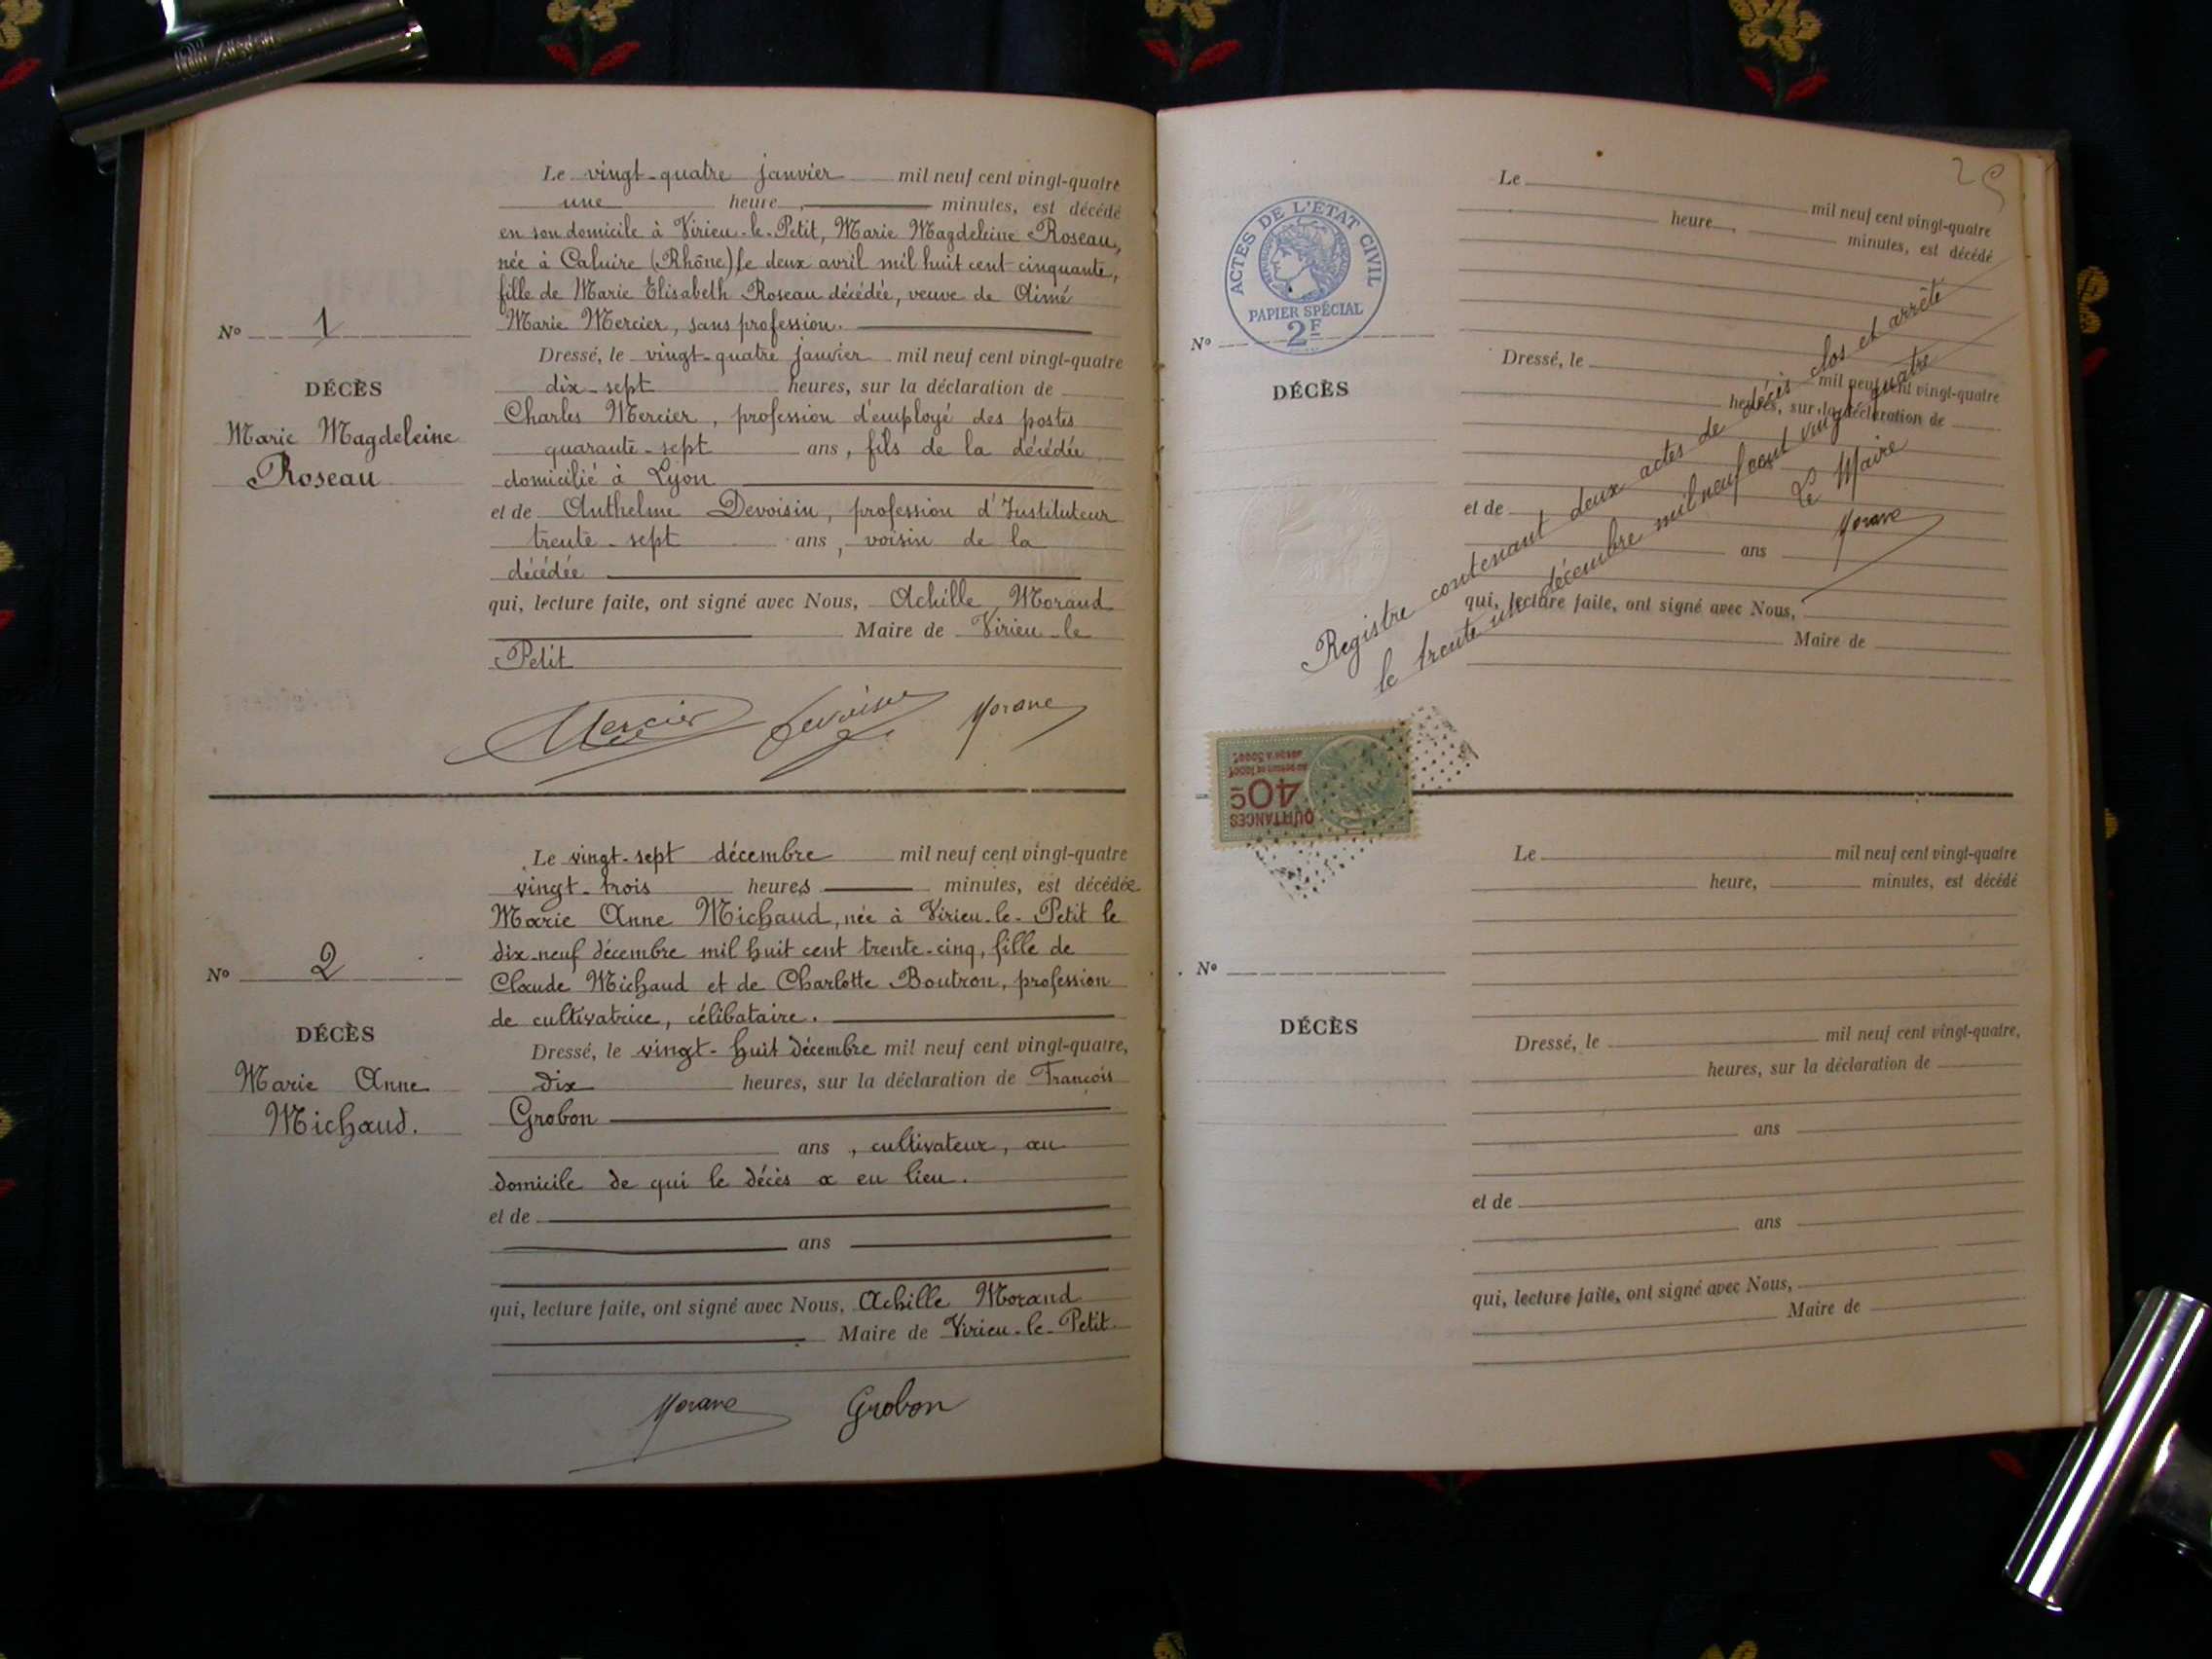 Le vingt-quatre janvier mil neuf cent vingt-quatre
une heure, minutes, est décédé
en son domicile à Virieu-le-Petit, Marie Magdeleine Roseau,
née à Caluire (Rhône) le deux avril mil huit cent cinquante,
fille de Marie Elisabeth Roseau décédée, veuve de Aimé
Marie Mercier, sans profession.
Nº 1
Dressé, le vingt-quatre janvier mil neuf cent vingt-quatre
DÉCÈS
dix-sept heures, sur la déclaration de
Marie Magdeleine
Roseau
Charles Mercier, profession d'employé des postes
quarante-sept ans, fils de la décédée
domicilié à Lyon
et de Anthelme Devoisin, profession d'Instituteur
trente-sept ans, voisin de la
décédée
qui, lecture faite, ont signé avec Nous, Achille Morand
Maire de Virieu-le
Petit
Mercier Devoisin Morand
Le vingt-sept décembre mil neuf cent vingt-quatre
vingt-trois heures minutes, est décédée
Marie Anne Michaud, née à Virieu-le-Petit le
dix-neuf décembre mil huit cent trente-cinq, fille de
Claude Michaud et de Charlotte Boutron, profession
de cultivatrice, célibataire.
Nº 2
DÉCÈS
Marie Anne
Michaud.
Dressé, le vingt-huit décembre mil neuf cent vingt-quatre,
dix heures, sur la déclaration de François
Grobon
ans, cultivateur, au
domicile de qui le décès a eu lieu.
et de
ans
qui, lecture faite, ont signé avec Nous, Achille Morand
Maire de Virieu-le-Petit.
Morand Grobon
25
ACTES DE L'ETAT CIVIL
PAPIER SPÉCIAL
2F
Le mil neuf cent vingt-quatre
heure, minutes, est décédé
Nº
DÉCÈS
Dressé, le mil neuf cent vingt-quatre
heures, sur la déclaration de
et de
ans
qui, lecture faite, ont signé avec Nous,
Maire de
Registre contenant deux actes de décès clos et arrêté
le trente un décembre mil neuf cent vingt quatre
Le Maire
Morand
QUITTANCES
40c
Le mil neuf cent vingt-quatre
heure, minutes, est décédé
Nº
DÉCÈS
Dressé, le mil neuf cent vingt-quatre,
heures, sur la déclaration de
ans
et de
ans
qui, lecture faite, ont signé avec Nous,
Maire de